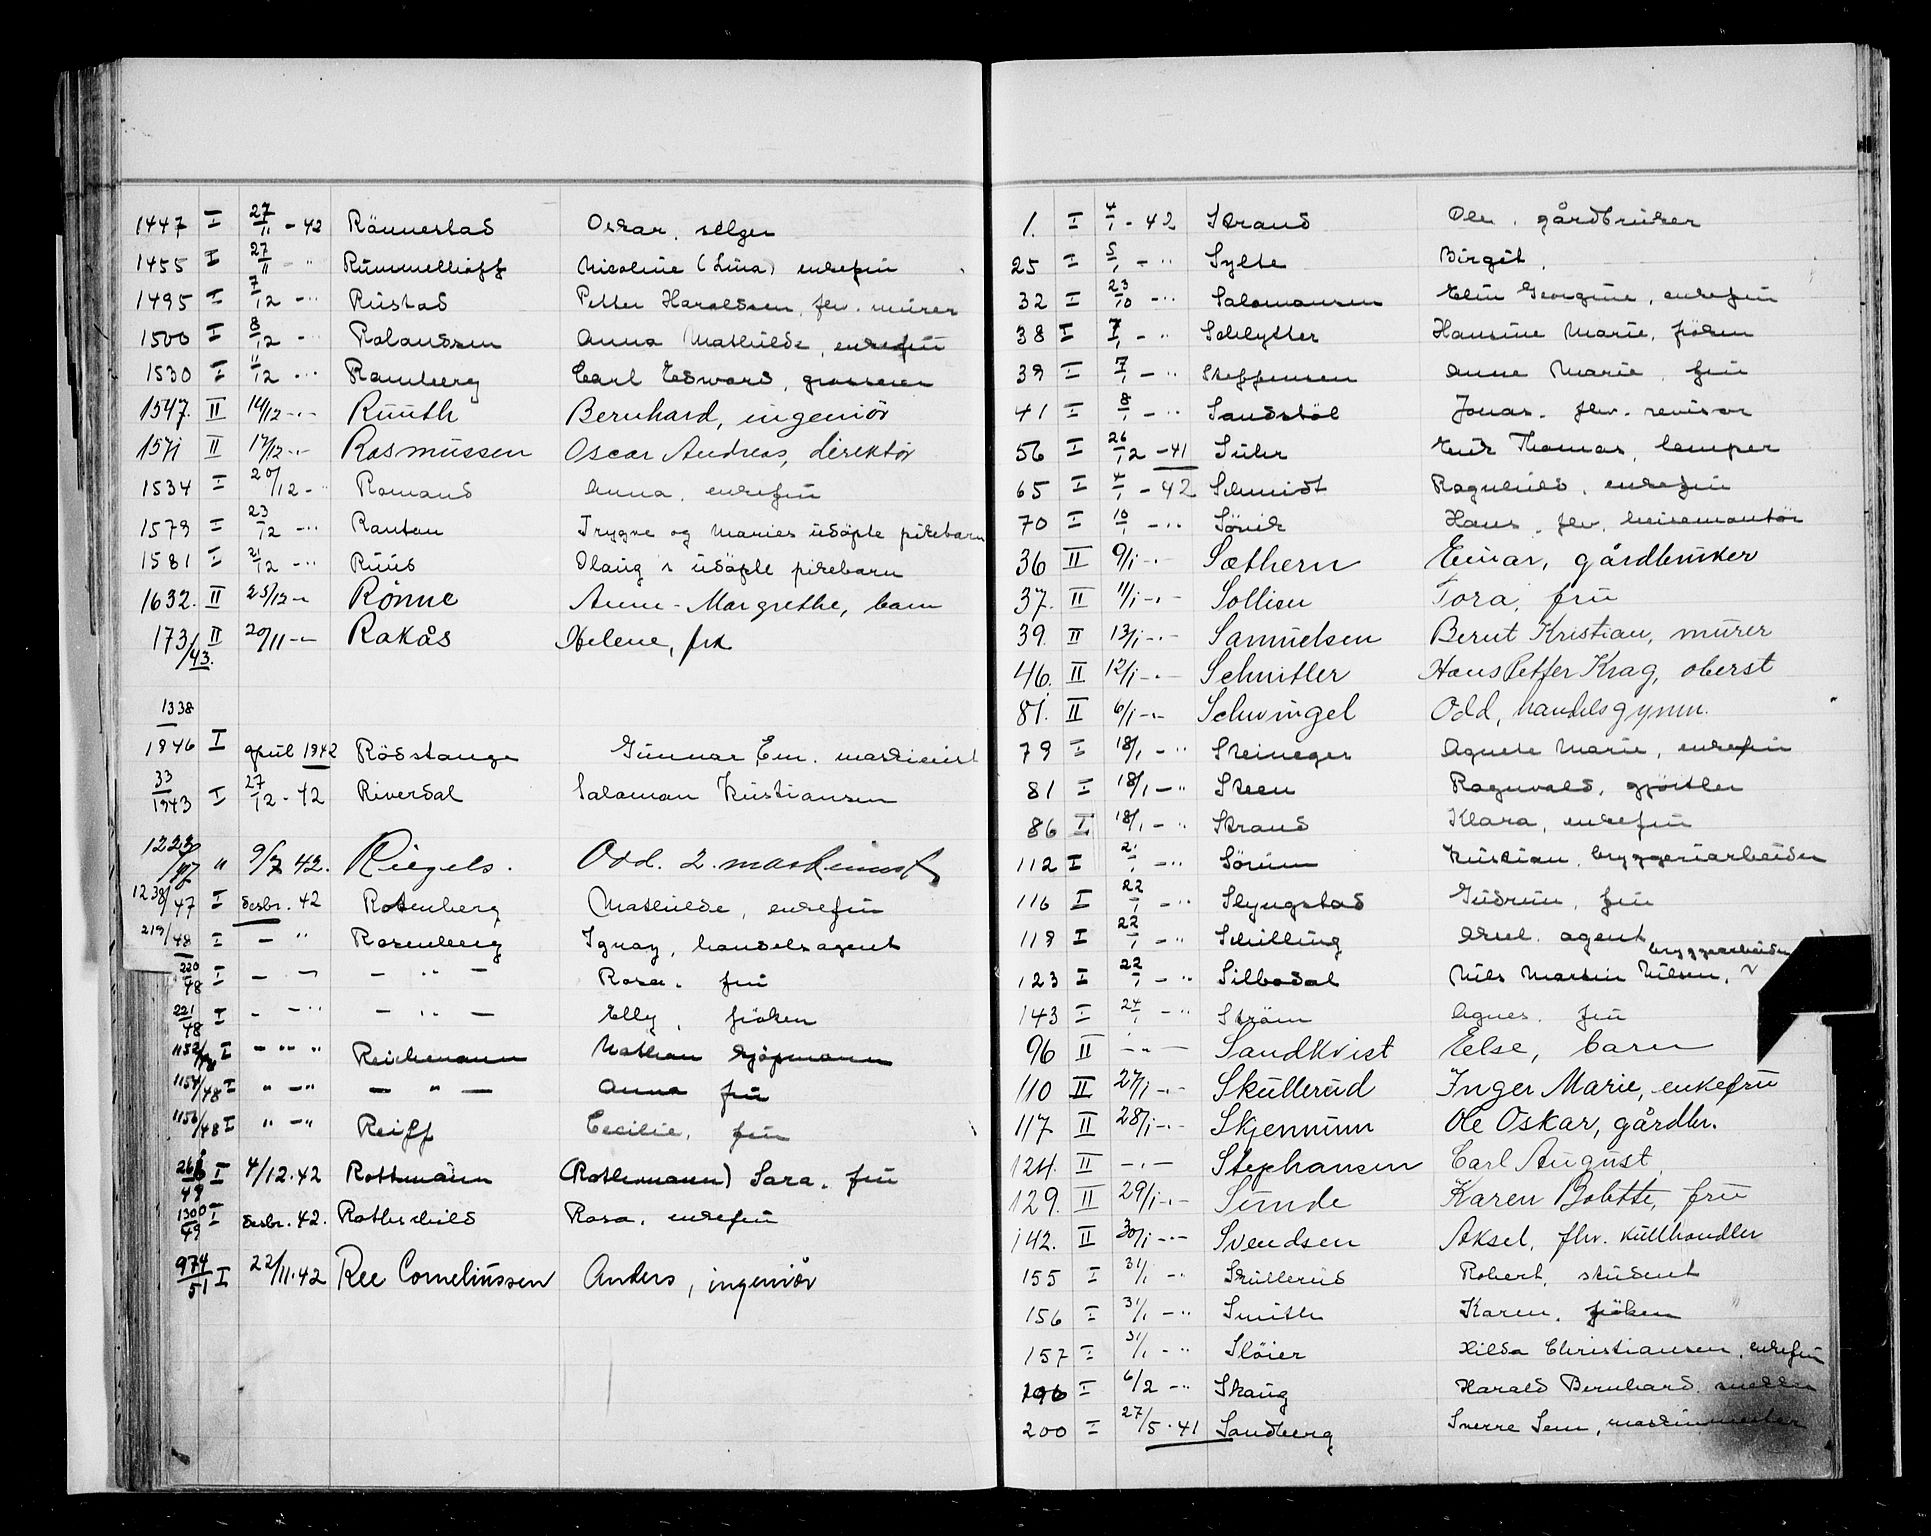 1447 I 27/11 - 42 Rönnestad Oskar, selger
1455 I 27/11 - " Rummelhoff Nicoline (Lina) enkefru
1495 I 7/12 - " Rustad Petter Haraldsen, fhv. murer
1500 I 8/12 - " Rolandsen Anna Mathilde, enkefru
1530 I 11/12 - " Ramberg Carl Edward, grosserer
1547. II 14/12 -"- Ruuth Bernhard, ingeniør
1571 II 17/12 -"- Rasmussen Oscar Andreas, direktør
1534 I 20/12 - " Romand Anna, enkefru
1579 I 23/12 - " Ranten Trygve og Maries udöpte pikebarn
1581 I 21/12 - " Ruud Olaug's udöpte pikebarn
1632. II 25/12 -"- Rønne Anne-Margrethe, barn
173/43. II 20/11 -"- Rakås Helene, frk
1338
1946 I april 1942 Rödstange Gunnar Em. maskinist
33/1943 I 27/12 - 42 Riverdal Salomon Kristiansen
1223/47 " 9/7 42. Riegels. Odd. 2. maskinist
1238/47 I desbr. 42 Rotenberg Mathilde, enkefru
219/48 I - " Rosenberg Ignay, handelsagent
220/48 I - " - " - Rosa, fru
221/48 I - - " - " - Elly, fröken
1152/48 I - " " Reichmann Nathan kjöpmann
1154/48 I " - " - " - Anna fru
1156/48 I " - " Reiff Cecilie, fru
266/49 I 4/12.42 Rottmann (Rothmann) Sara, fru
1300/49 I desbr. 42. Rothschild Rosa, enkefru
974/51 I 22/11.42 Ree Corneliussen Anders, ingeniør
1. I 4/1 - 42 Strand Ole, gårdbruker
25 I 5/1 - " Sylte Birgit,
32 I 23/10 - " Salomonsen Elin Georgine, enkefru
38 I 7/1 - " Schlytter Hansine Marie, fröken
39 I 7/1 - " Steffensen Anne Marie, fru
41 I 8/1 - " Sandstöl Jonas, fhv. revisor
56 I 26/12 - 41 Suhr Erik Thomas, lemper
65 I 4/1 - 42 Schmidt Ragnhild, enkefru
70 I 10/1 - " Sövik Hans, fhv. heisemontör
36 II 9/1 -"- Sæthern Einar, gårdbruker
37. II 11/1 -"- Sollien Tora, fru
39. II 13/1 -"- Samuelsen Bernt Kristian, murer
46. II 12/1 -"- Schnitler Hans Petter Krag, oberst
81. II 6/1 -"- Schwingel Odd, handelsgymn.
79 I 18/1 - " Steineger Agnete Marie, enkefru
81 I 18/1 - " Steen Ragnvald, gjörtler
86 I 18/1 - " Strand Klara, enkefru
112 I 21/1 - " Sörum Kristian, bryggeriarbeider
116 I 22/1 - " Slyngstad Gudrun, fru
119 I 22/1 - " Schilling Aksel, agent
bryggearbeider
123 I 22/1 - " Silbodal Nils Martin Nilsen,
143 I 24/1 - " Ström Agnes, fru
96 II -"- Sandkvist Else, barn
110 II 27/1 -"- Skullerud Inger Marie, enkefru
117 II 28/1 -"- Skjennum Ole Oskar, gårdbr.
124. II -"- Stephansen Carl August
129. II 29/1 -"- Sunde Karen Bolette, fru
142. II 30/1 -"- Svendsen Aksel, fhv. kullhandler
155 I 31/1 - " Skullerud Robert, student
156 I 31/1 - " Smith Karen, fröken
157 I 31/1 - " Slöier Hilda Christiansen, enkefru
196 I 6/2 - " Skaug Harald Bernhard, snekker
200 I 27/5.41 Sandberg Sverre Sem, maskinmester